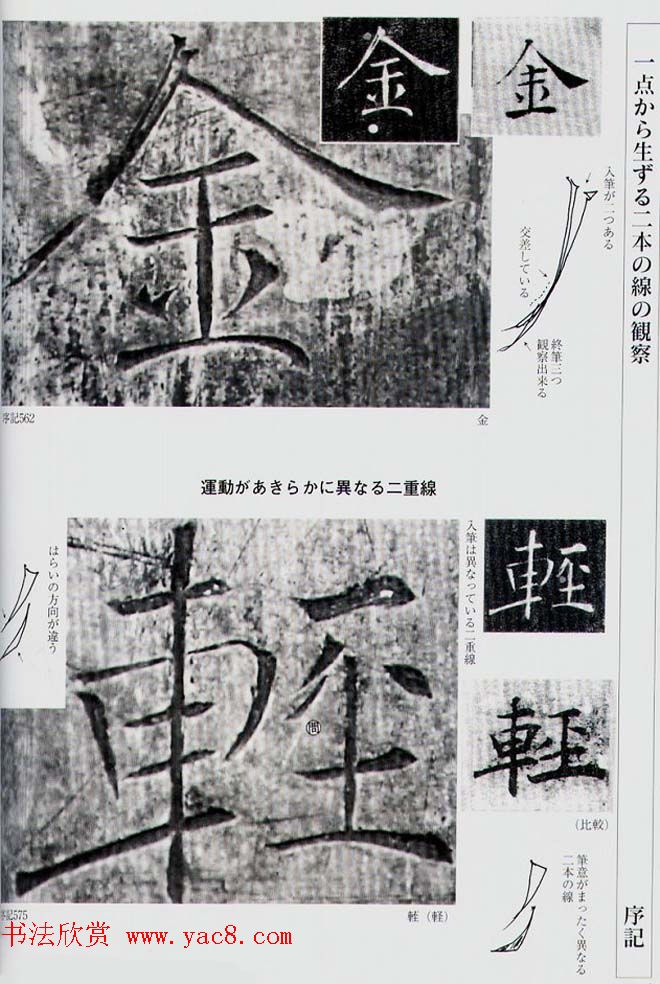 一点から生ずる二本の線の観察
序記
金
金
金
入筆が二つある
交差している
終筆三つ
観察出来る
序記562
金
運動があきらかに異なる二重線
入筆は異なっている二重線
はらいの方向が違う
(比較)
筆意がまったく異なる
二本の線
序記575
軽(軽)
书法欣赏 www.yac8.com